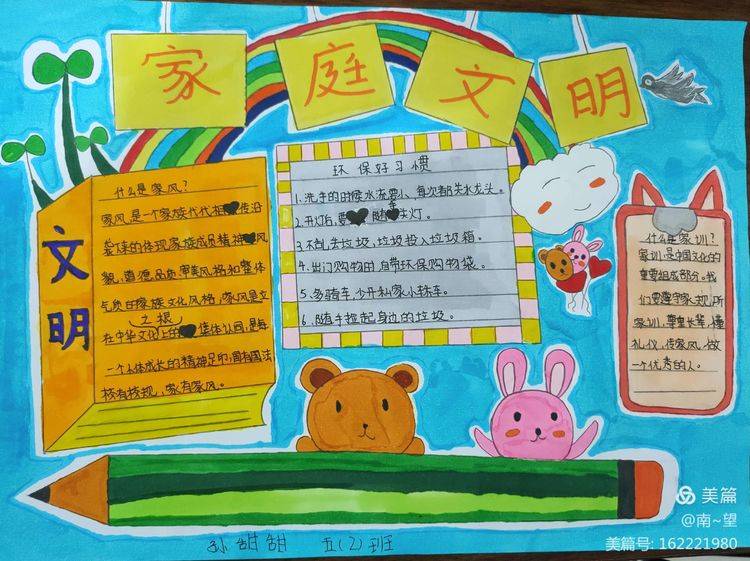 家庭文明
文明
什么是家风?
家风是一个家族代代相传沿
袭下来的体现家族成员精神风
貌,道德品质,审美风格和整体
气质的家族文化风格,家风是立
之根
在中华文化上的集体认同,是每
一个人体成长的精神足印,国有国法
校有校规,家有家风。
环保好习惯
1.洗手的时候水流要小、每次都关水龙头。
2.开灯后,要随手关灯。
3.不乱丢垃圾,垃圾投入垃圾箱。
4.出门购物时自带环保购物袋。
5.多骑车,少开私家小轿车。
6.随手捡起身边的垃圾。
什么是家训?
家训,是中国文化的
重要组成部分。我
们要遵守家规,所
家训,尊重长辈,懂
礼仪,传家风,做
一个优秀的人。
孙甜甜 五(2)班
美篇
@南~望
美篇号:162221980